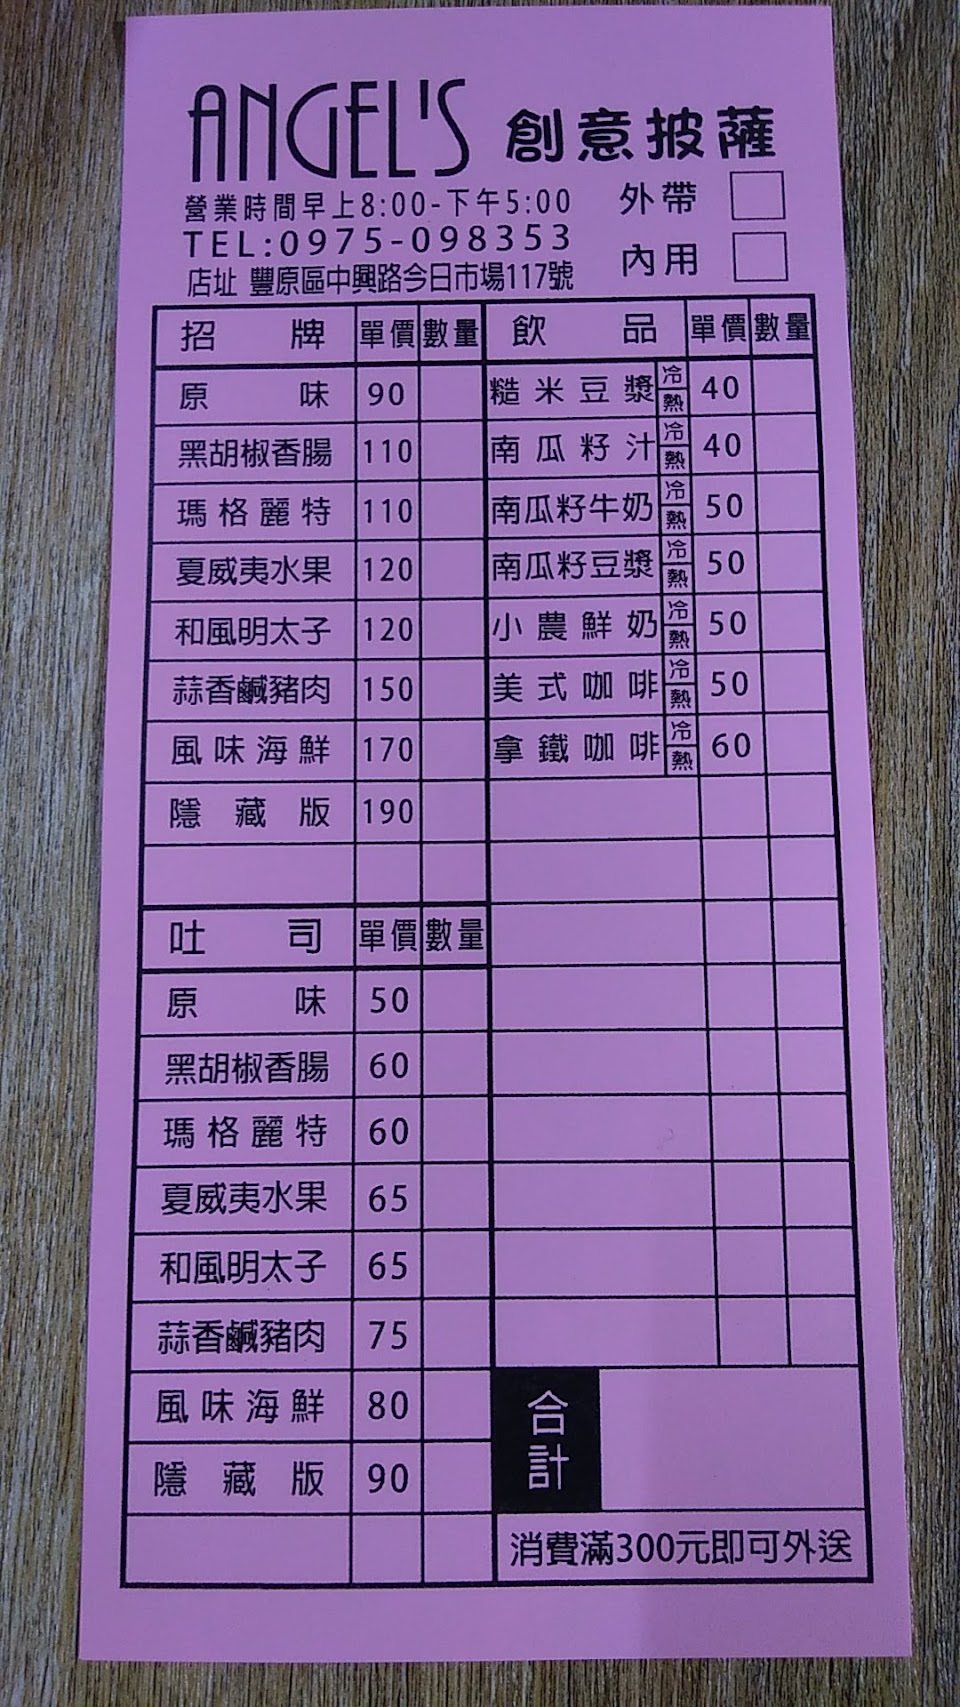 ANGEL'S 創意披薩
營業時間早上8:00-下午5:00
TEL:0975-098353
店址 豐原區中興路今日市場117號
外帶
內用
招牌 單價 數量
原味 90
黑胡椒香腸 110
瑪格麗特 110
夏威夷水果 120
和風明太子 120
蒜香鹹豬肉 150
風味海鮮 170
隱藏版 190
吐司 單價 數量
原味 50
黑胡椒香腸 60
瑪格麗特 60
夏威夷水果 65
和風明太子 65
蒜香鹹豬肉 75
風味海鮮 80
隱藏版 90
飲品 單價 數量
糙米豆漿 冷 熱 40
南瓜籽汁 冷 熱 40
南瓜籽牛奶 冷 熱 50
南瓜籽豆漿 冷 熱 50
小農鮮奶 冷 熱 50
美式咖啡 冷 熱 50
拿鐵咖啡 冷 熱 60
合計
消費滿300元即可外送